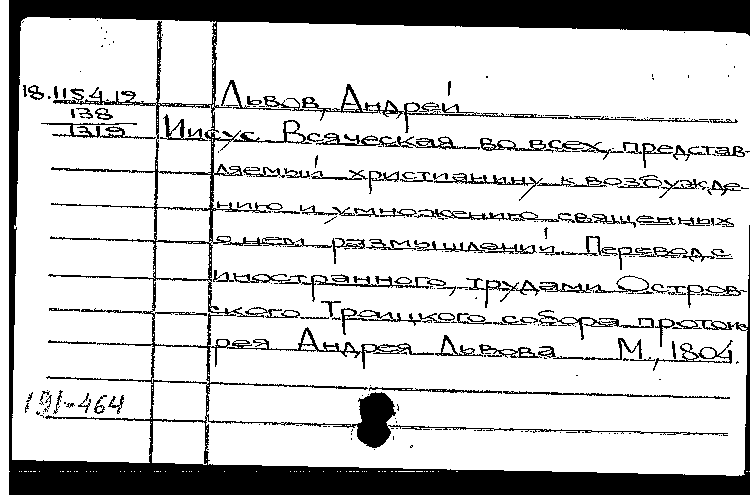 18.115.4.19
138
1319
Львов, Андрей
Иисус Всяческая во всех, представ-
ляемый христианину к возбужде-
нию и умножению священных
о нем размышлений. Перевод с
иностранного, трудами Остров-
ского Троицкого собора протои-
рея Андрея Львова М., 1804.
191-464